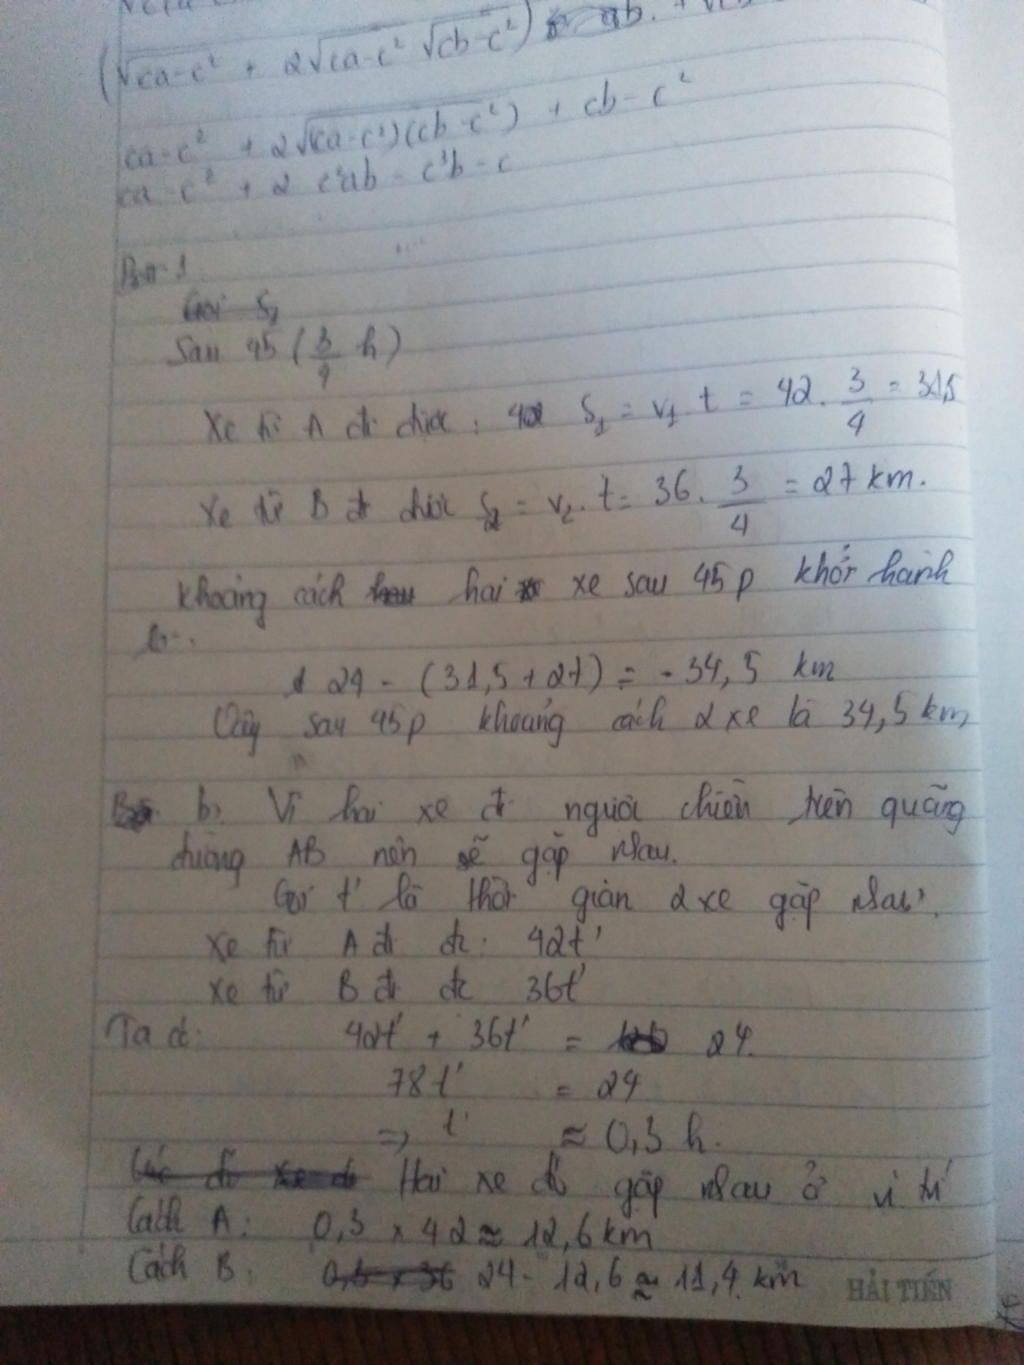 (√ca-c² + 2√ca-c² √cb-c²)
ca-c² + 2√(ca-c²)(cb-c²) + cb-c²
ca-c² + 2 c²ab - c³b - c
Gọi S₁
Sau 45 (3/4 h)
Xe từ A đi được : S₁ = v₁. t = 42. 3/4 = 31,5
Xe từ B đi được S₂ = v₂. t = 36. 3/4 = 27 km.
Khoảng cách hai xe sau 45p khởi hành
là.
24 - (31,5 + 27) = - 34,5 km
Vậy sau 45p khoảng cách 2 xe là 34,5 km
b, Vì hai xe đi ngược chiều trên quãng
đường AB nên sẽ gặp nhau.
Gọi t' là thời gian 2 xe gặp nhau.
Xe từ A đi đc: 42t'
Xe từ B đi đc 36t'
Ta có: 42t' + 36t' = 24.
78t' = 24
=> t' ≈ 0,3 h.
Hai xe đó gặp nhau ở vị trí
Cách A: 0,3 x 42 ≈ 12,6 km
Cách B: 24 - 12,6 ≈ 11,4 km
HẢI TIẾN